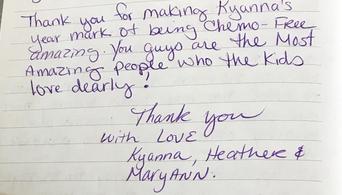 Thank you for making Kyanna's
year mark of being Chemo-Free
amazing. You guys are the Most
Amazing people who the Kids
love dearly!
Thank you
with LOVE
Kyanna, Heather &
MaryANN.